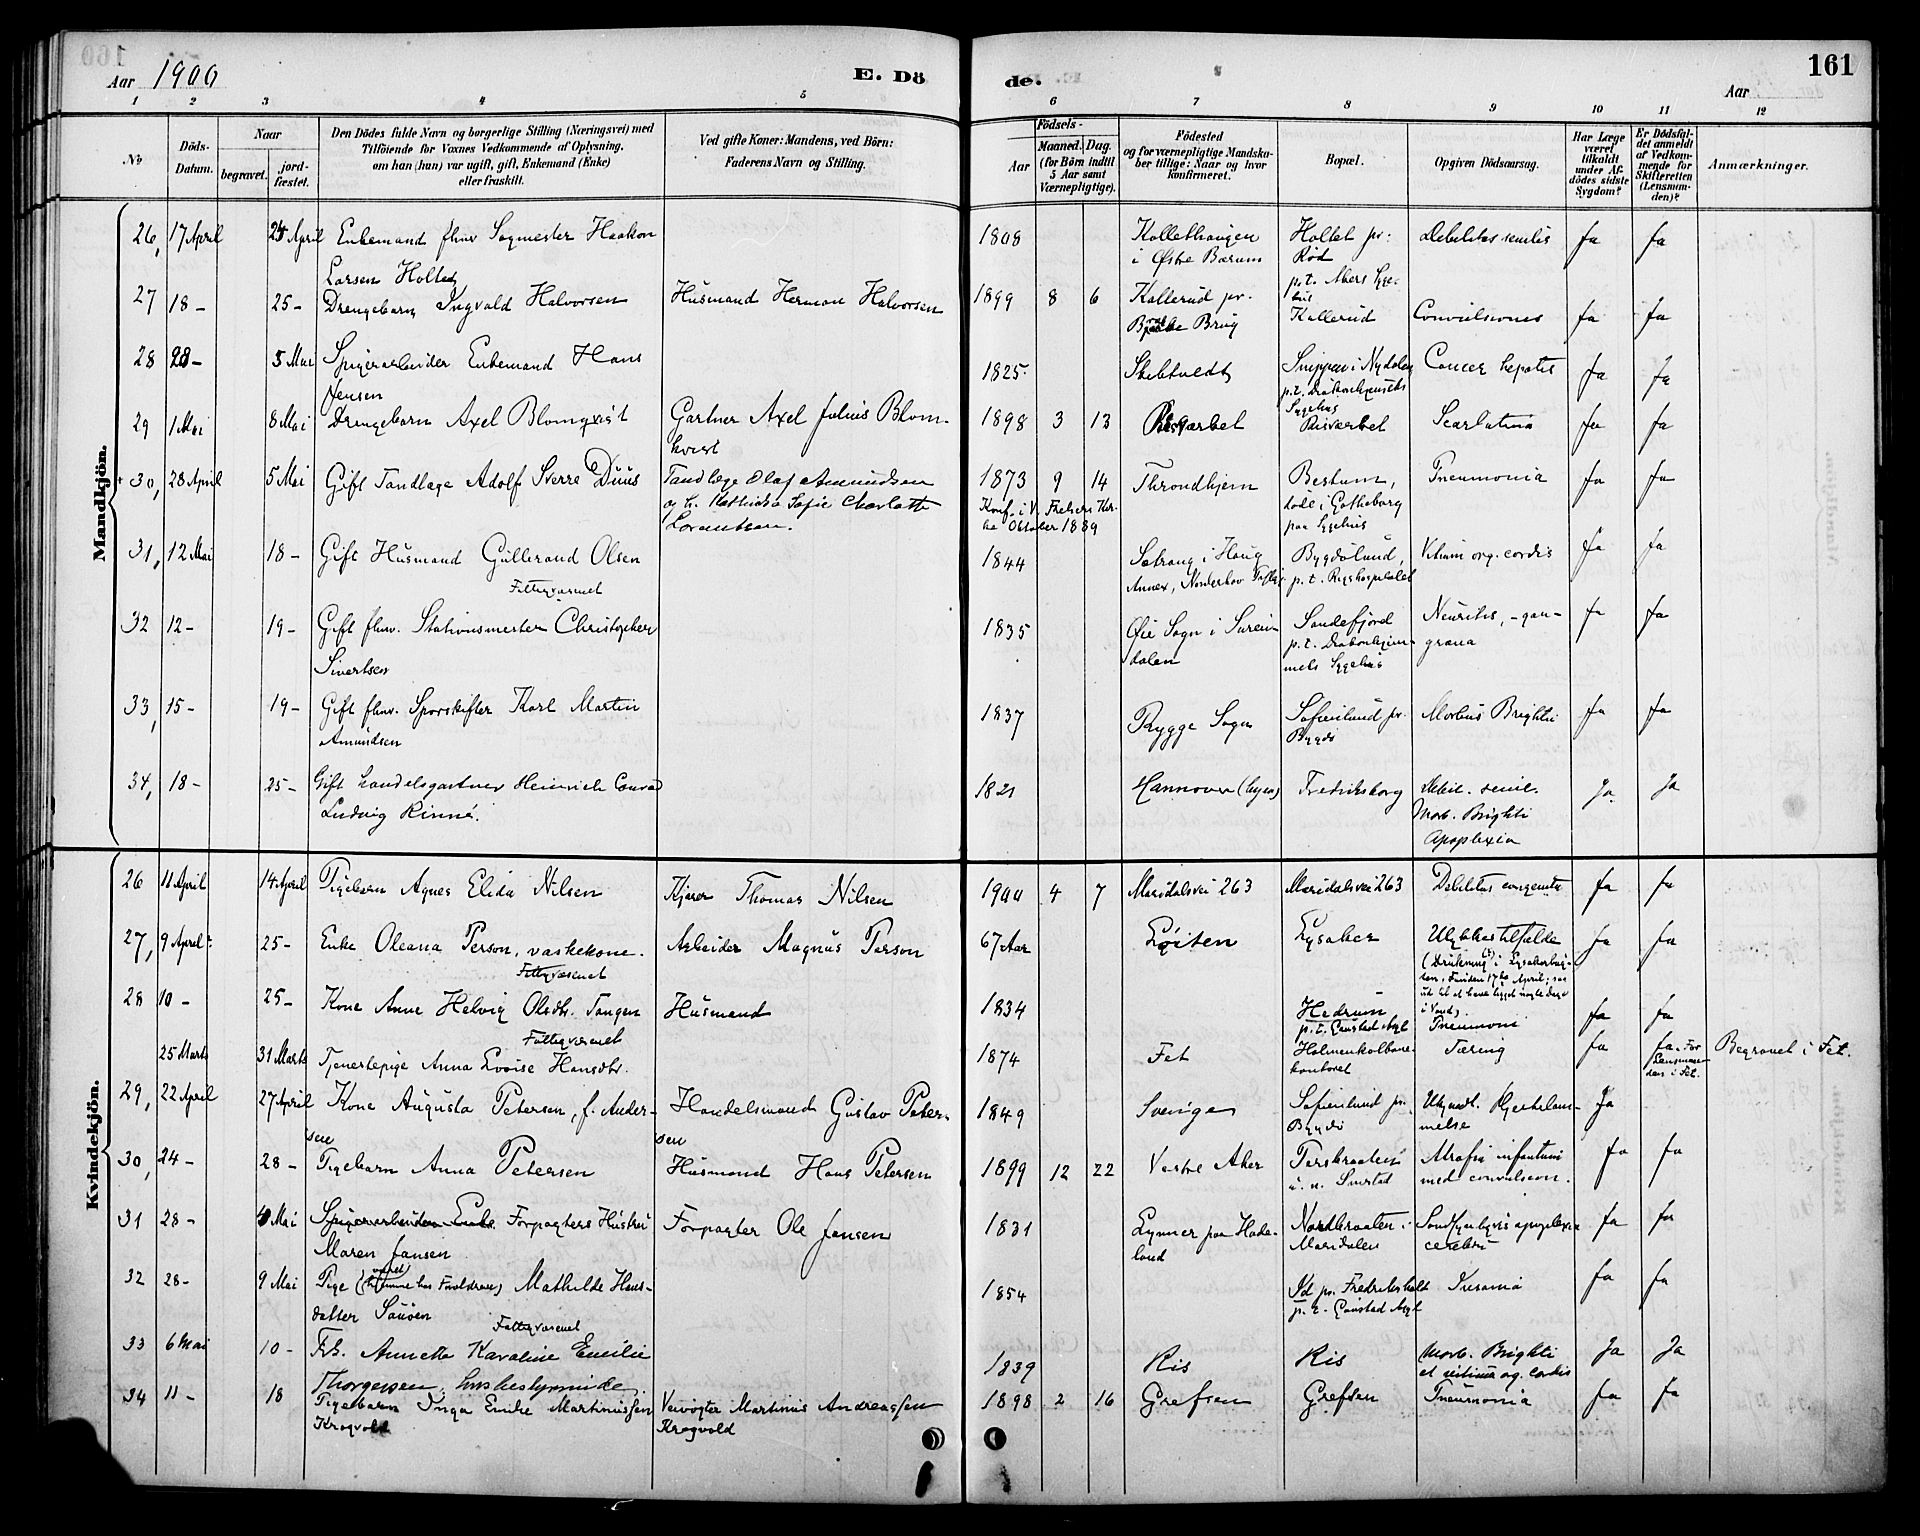 Aar 1900
E. Dö
de.
161
Aar
1 2 3 4 5 6 7 8 9 10 11 12
No
Döds-Datum.
Naar
begravet.
jord-fæstet.
Den Dödes fulde Navn og borgerlige Stilling (Næringsvei) med
Tilföiende for Voxnes Vedkommende af Oplysning,
om han (hun) var ugift, gift, Enkemand (Enke)
eller fraskilt.
Ved gifte Koner: Mandens, ved Börn:
Faderens Navn og Stilling.
Födsels-
Aar
Maaned.
Dag.
(for Börn indtil
5 Aar samt
Værnepligtige).
Födested
og for værnepligtige Mandska-
ber tillige: Naar og hvor
konfirmeret.
Bopæl.
Opgiven Dödsaarsag.
Har Læge
været
tilkaldt
under Af-
dödes sidste
Sygdom?
Er Dödsfal-
det anmeldt
af Vedkom-
mende for
Skifteretten
(Lensman-
den)?
Anmærkninger.
Mandkjön.
26, 17 April 24 April Enkemand fhv. Sagmester Haakon 1808 Kollethaugen Holtet pr: Debilitas senilis Ja Ja
Larsen Holted i Østre Bærum Rød
p.t. Akers Syge-
hus
27 18 - 25 - Drengebarn Ingvald Halvorsen Husmand Herman Halvorsen 1899 8 6 Kallerud pr. Kallerud Convulsiones Ja Ja
Brug
28 28 - 5 Mai Spigerarbeider Enkemand Hans 1825 Snippen i Nydalen Cancer hepatis Ja Ja
Jensen p.t. Diakonhjemmets
Sygehus
29 1 Mai 8 Mai Drengebarn Axel Blomqvist Gartner Axel Julius Blom- 1898 3 13 Risværket Risværket Scarlatina Ja Ja
kvist
30, 28 April 5 Mai Gift Tandlæge Adolf Sverre Duus Tandlæge Olaf Amundsen 1873 9 14 Throndhjem Bestum, Pneumonia Ja Ja
og h. Mathilda Sofie Charlotte Konf. i V. Frelsers Kir- død i Gøtheborg
Lorentsen. ke Oktober 1889 paa Sygehus
31, 12 Mai 18 - Gift Husmand Gulbrand Olsen 1844 i Haug Bygdølund, Vitium org. cordis Ja Ja
Fattigvæsenet Annex, Norderhov p.t. Rigshospitalet
32 12 - 19 - Gift fhv. Stationsmester Christopher 1835 Øie Sogn i Suren- Sandefjord Neuritis, - gan- Ja Ja
Sivertsen dalen p.t. Diakonhjem- græna
mets Sygehus
33, 15 - 19 - Gift fhv. Sporskifter Karl Martin 1837 Rygge Sogn Sofienlund pr. Morbus Brightii Ja Ja
Amundsen Bygdø
34, 18 - 25 - Gift Handelsgartner Heinrich Conrad 1821 Hannover (byen) Fredriksborg Debil. senil. Ja Ja
Ludvig Rinné. Morb. Brightii
Apoplexia
Kvindekjön.
26 11 April 14 April Pigebarn Agnes Elida Nilsen Kjører Thomas Nilsen 1900 4 7 Maridalsvei 263 Maridalsvei 263 Debilitas congenita Ja Ja
27, 9 April 25 - Enke Oleana Person, vaskekone. Arbeider Magnus Person 67 Aar Løiten Lysaker Ulykkestilfælde Ja Ja
Fattigvæsenet (Drukning i Lysakerbug-
ten, Funden 17de April; saa
ud til at have ligget nogle Dage
i Vand).
28 10 - 25 - Kone Anne Helvig Olsdtr. Tangen Husmand 1834 Hedrum Pneumoni Ja Ja
Fattigvæsenet p.t. Gaustad Asyl
25 Marts 31 Marts Tjenestepige Anna Lovise Hansdtr. 1874 Fet Holmenkolbane- Tæring Ja Ja. For Begravet i Fet.
kontoret Lensman-
den i Fet.
29, 22 April 27 April Kone Augusta Petersen, f. Ander- Handelsmand Gustav Peter- 1849 Sverige Sofienlund pr. Hjertelam- Ja
sen sen Bygdø melse
30, 24 - 28 - Pigebarn Anna Petersen Husmand Hans Petersen 1899 12 22 Vestre Aker Atrofia infantum Ja Ja
med convulsion.
31 28 - 4 Mai Spigerarbeider Enke Forpagters Hustru Forpagter Ole Jansen 1831 Lynner paa Hade- Nordbraaten i apoplexia Ja Ja
Maren Jansen land Maridalen cerebri
32 28 - 9 Mai Pige (hjemme hos Forældrene) Mathilde Hans- 1854 Id pr. Fredrikshald Ja Ja
datter p.t. Gaustad Asyl
Fattigvæsenet
33 6 Mai 10 - Frk. Annette Karoline Emilie 1839 Ris Ris Morb. Brightii Ja Ja
Thorgersen, husbestyrerinde. et vitium org. cordis
34 11 - 18 Pigebarn Inga Emilie Martiniussen Veivogter Martinius Andreassen 1898 2 16 Grefsen Grefsen Pneumonia Ja Ja
Krogvold Krogvold